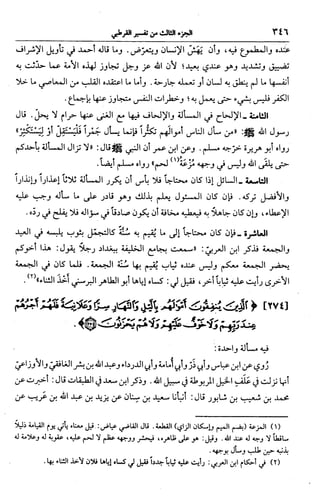 ٣٤٦ الجزء الثالث من تفسير القرطبي
عنده والمطموع فيه، وأن يَهَشّ الإنسان ويتعرض. وما قاله أحمد في تأويل الإشراف
تضييق وتشديد وهو عندي بعيد؛ لأن الله عز وجل تجاوز لهذه الأمة عما حدّثت به
أنفسها ما لم ينطق به لسان أو تعمله جارحة. وأما ما اعتقده القلب من المعاصي ما خلا
الكفر فليس بشيء حتى يعمل به؛ وخطرات النفس متجاوز عنها بإجماع.
الثامنة ـ الإلحاح في المسألة والإلحاف فيها مع الغنى عنها حرام لا يحل. قال
رسول الله ﷺ: «من سأل الناس أموالهم تكثُّراً فإنما يسأل جَمْراً فَلْيَسْتَقِلّ أو لِيَسْتَكْثِر»
رواه أبو هريرة خرّجه مسلم. وعن ابن عمر أن النبي ﷺ قال: «لا تزال المسألة بأحدكم
حتى يلقى الله وليس في وجهه مُزْعَة(١) لحم» رواه مسلم أيضاً.
التاسعة ـ السائل إذا كان محتاجاً فلا بأس أن يكرر المسألة ثلاثاً إعذاراً وإنذاراً
والأفضل تركه. فإن كان المسئول يعلم بذلك وهو قادر على ما سأله وجب عليه
الإعطاء، وإن كان جاهلاً به فيعطيه مخافة أن يكون صادقاً في سؤاله فلا يفلح في ردّه.
العاشرة ـ فإن كان محتاجاً إلى ما يُقيم به سُنّة كالتجمّل بثوب يلبسه في العيد
والجمعة فذكر ابن العربيّ: «سمعت بجامع الخليفة ببغداد رجلاً يقول: هذا أخوكم
يحضر الجمعة معكم وليس عنده ثياب يُقيم بها سُنّة الجمعة. فلما كان في الجمعة
الأخرى رأيت عليه ثياباً أخر، فقيل لي: كساه إياها أبو الطاهر البرسني أخذَ الثناء»(٢).
[٢٧٤] ﴿ الَّذِينَ يُنفِقُونَ أَمْوَالَهُم بِاللَّيْلِ وَالنَّهَارِ سِرًّا وَعَلَانِيَةً فَلَهُمْ أَجْرُهُمْ
عِندَ رَبِّهِمْ وَلَا خَوْفٌ عَلَيْهِمْ وَلَا هُمْ يَحْزَنُونَ ﴾.
فيه مسألة واحدة:
رُوي عن ابن عباس وأبي ذَرّ وأبي أمامة وأبي الدرداء وعبد الله بن بشر الغافقيّ والأوزاعيّ
أنها نزلت في عَلَف الخيل المربوطة في سبيل الله. وذكر ابن سعد في الطبقات قال: أخبرت عن
محمد بن شعيب بن شابور قال: أنبأنا سعيد بن سِنان عن يزيد بن عبد الله بن عَريب عن
(١) المزعة (بضم الميم وإسكان الزاي) القطعة. قال القاضي عياض: قيل معناه يأتي يوم القيامة ذليلاً
ساقطاً لا وجه له عند الله. وقيل: هو على ظاهره، فيحشر ووجهه عظم لا لحم عليه، عقوبة له وعلامة له
بذنبه حين طلب وسأل بوجهه.
(٢) في أحكام ابن العربي: رأيت عليه ثياباً جدداً فقيل لي كساه إياها فلان لأخذ الثناء بها.